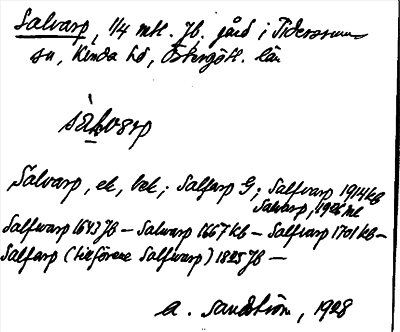 Salvarp, 1/4 mtl. Jb. gård i Tidersrums
sn, Kinda hd, Östergötl. län
Salvarp, ek, bek; Salfarp G; Salfvarp 1914 kb
Salvarp, 1926 ml
Salfwarp 1643 Jb – Salvarp 1667 kb – Salfvarp 1701 kb –
Salfarp (tillförene Salfwarp) 1825 Jb –
A. Sandström, 1928